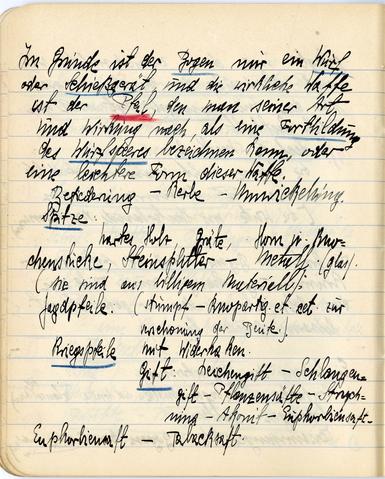 Im Grunde ist der Bogen nur ein Wurf
oder Schießgerät, und die wirkliche Waffe
ist der Pfeil, den man seiner Art
und Wirkung nach als eine Fortbildung
des Wurfspeeres bezeichnen kann, oder
eine leichtere Form dieser Waffe.
Befiederung – Kerbe – Umwickelung.
Spitze:
hartes Holz, Gräte, Horn u. Kno-
chenstücke, Steinsplitter – Metall. (glas).
(sie sind aus billigem Materiell):
Jagdpfeile: (stumpf – knopfartig et cet zur
verschonung der Beute.)
Kriegspfeile mit Widerhaken.
Gift: Leichengift – Schlangen-
gift – Pflanzensäfte – Strych-
ning – Akonit – Euphorbiensaft –
Euphorbiensaft – Taback saft.